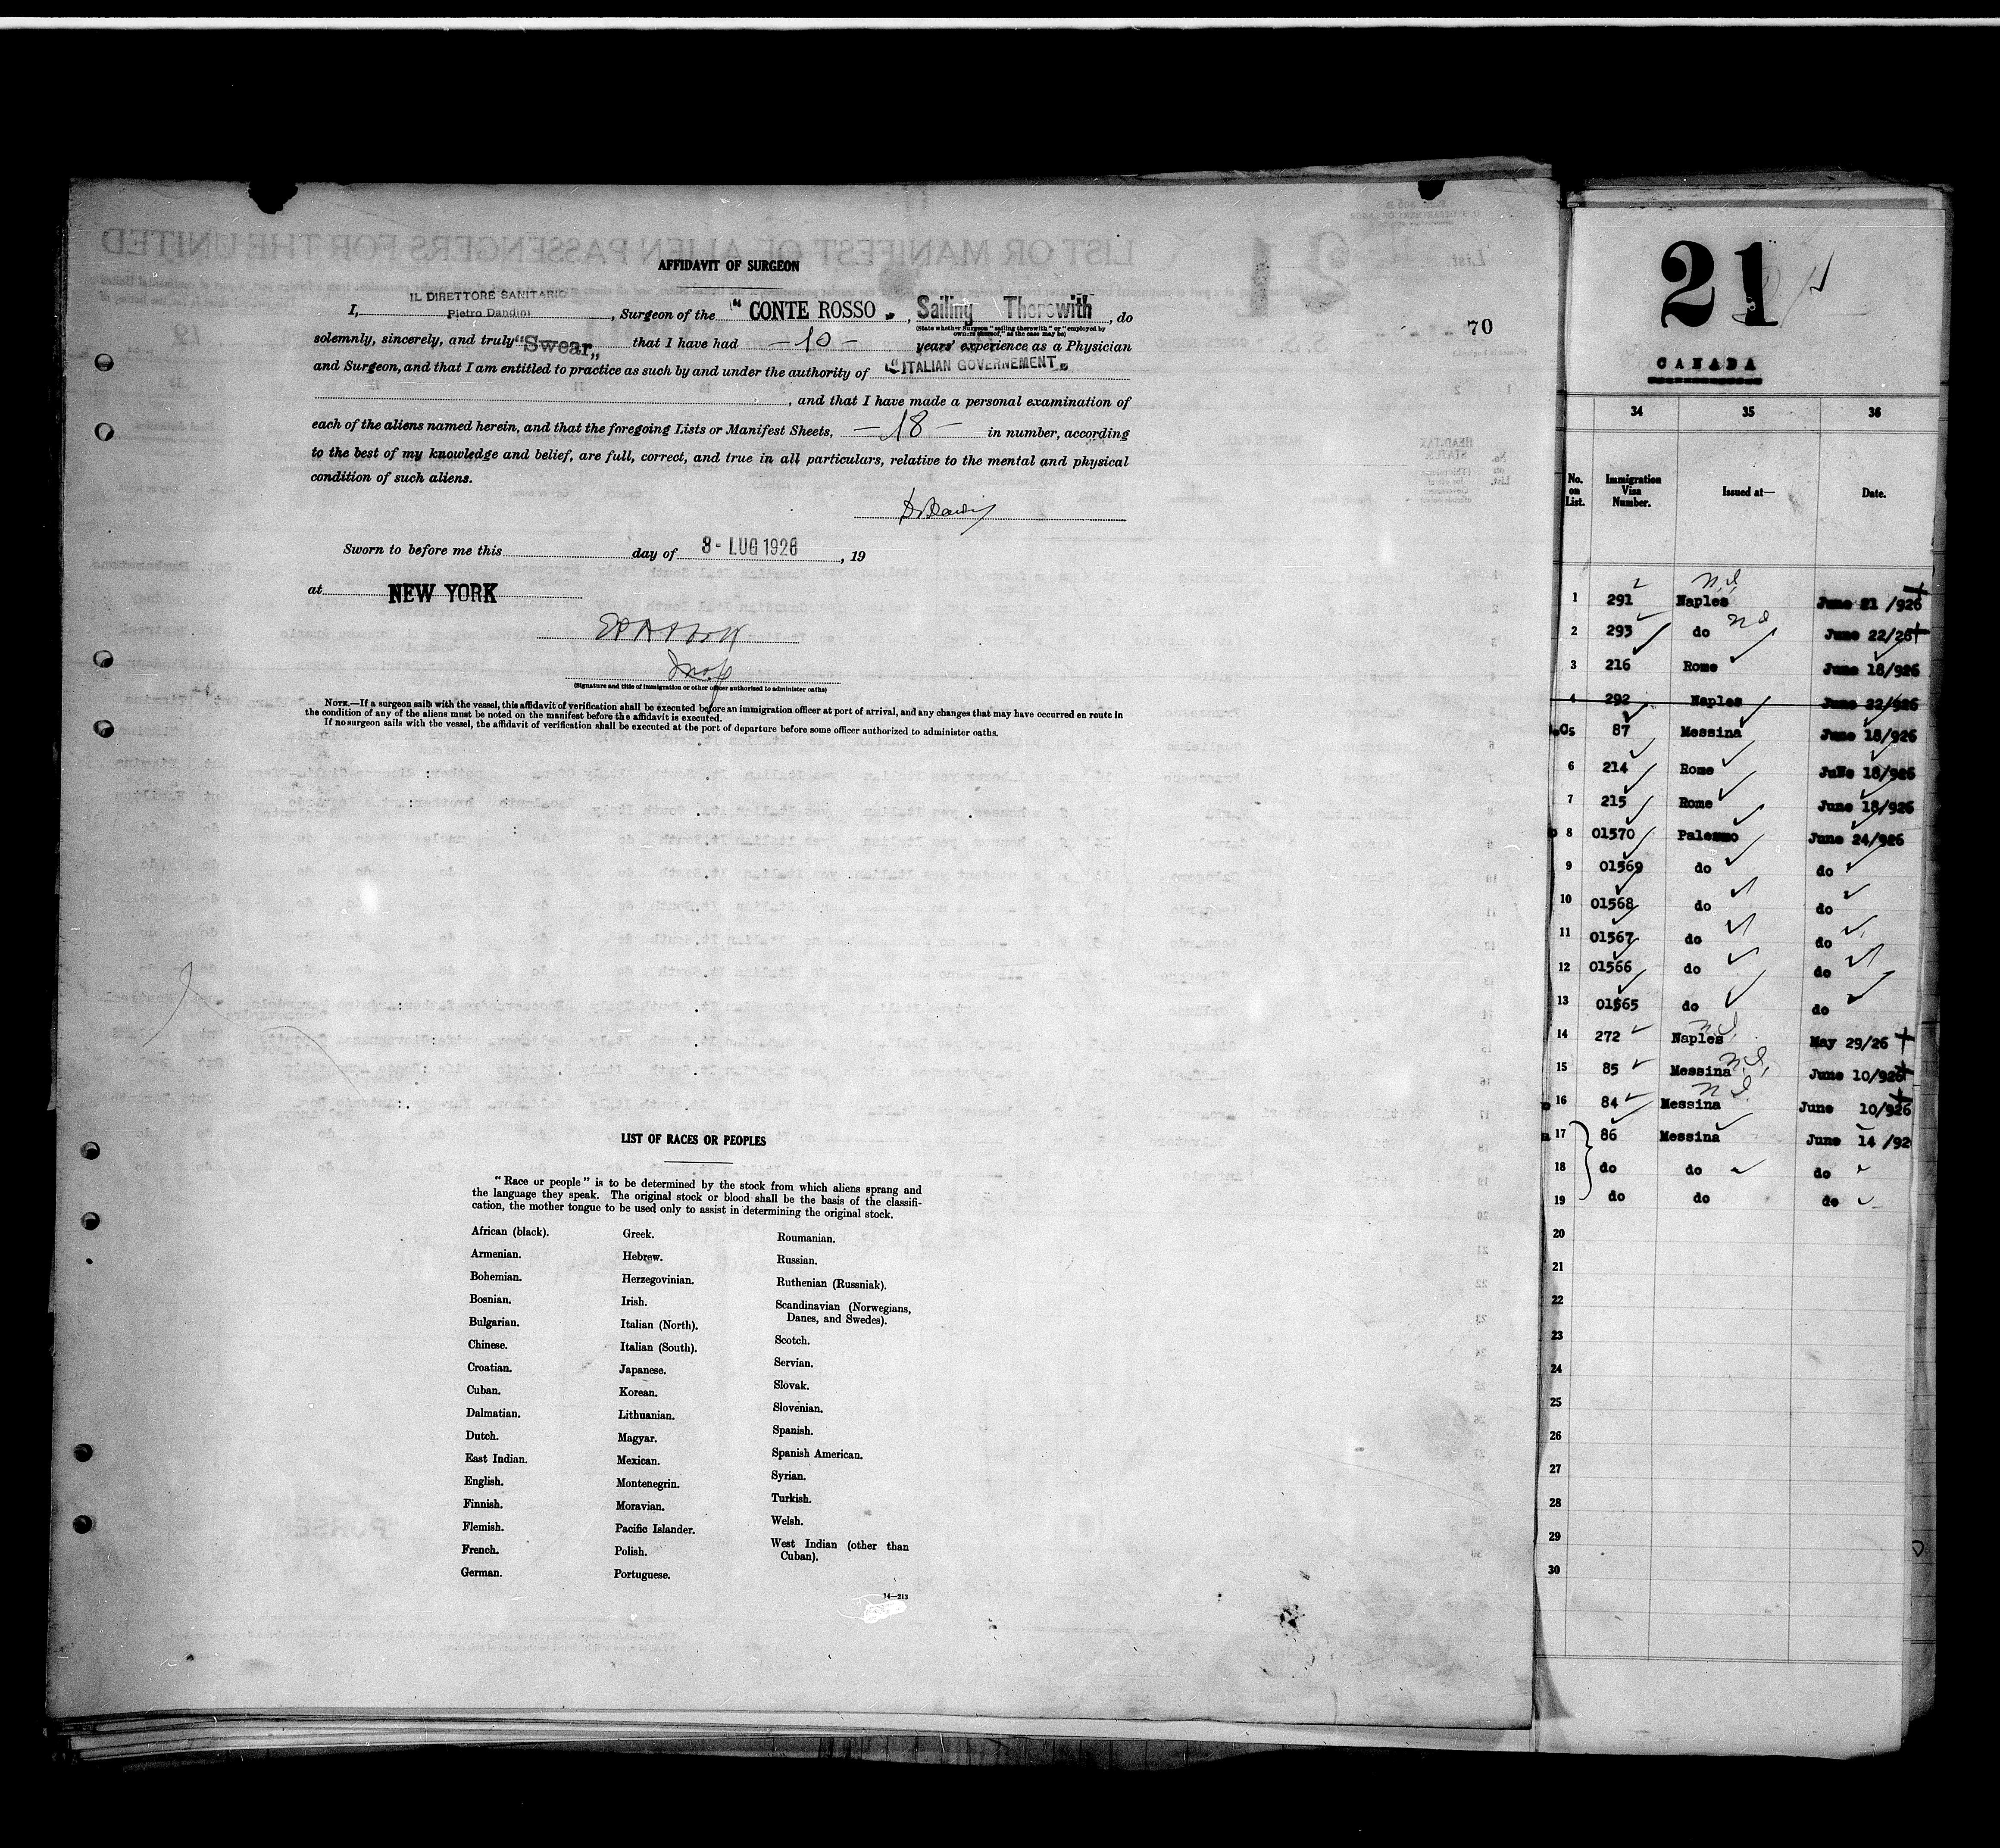 AFFIDAVIT OF SURGEON
I, IL DIRETTORE SANITARIO Pietro Dandini, Surgeon of the "CONTE ROSSO", Sailing Therewith, do
(State whether Surgeon "sailing therewith" or "employed by owners thereof," as the case may be)
solemnly, sincerely, and truly "Swear" that I have had —10— years' experience as a Physician
and Surgeon, and that I am entitled to practice as such by and under the authority of "ITALIAN GOVERNEMENT"
, and that I have made a personal examination of
each of the aliens named herein, and that the foregoing Lists or Manifest Sheets, —18— in number, according
to the best of my knowledge and belief, are full, correct, and true in all particulars, relative to the mental and physical
condition of such aliens.
Sworn to before me this day of 8- LUG 1926, 19
at NEW YORK
(Signature and title of immigration or other officer authorized to administer oaths)
NOTE.—If a surgeon sails with the vessel, this affidavit of verification shall be executed before an immigration officer at port of arrival, and any changes that may have occurred en route in
the condition of any of the aliens must be noted on the manifest before the affidavit is executed.
If no surgeon sails with the vessel, the affidavit of verification shall be executed at the port of departure before some officer authorized to administer oaths.
70
LIST OF RACES OR PEOPLES
"Race or people" is to be determined by the stock from which aliens sprang and
the language they speak. The original stock or blood shall be the basis of the classifi-
cation, the mother tongue to be used only to assist in determining the original stock.
African (black).
Armenian.
Bohemian.
Bosnian.
Bulgarian.
Chinese.
Croatian.
Cuban.
Dalmatian.
Dutch.
East Indian.
English.
Finnish.
Flemish.
French.
German.
Greek.
Hebrew.
Herzegovinian.
Irish.
Italian (North).
Italian (South).
Japanese.
Korean.
Lithuanian.
Magyar.
Mexican.
Montenegrin.
Moravian.
Pacific Islander.
Polish.
Portuguese.
Roumanian.
Russian.
Ruthenian (Russniak).
Scandinavian (Norwegians,
Danes, and Swedes).
Scotch.
Servian.
Slovak.
Slovenian.
Spanish.
Spanish American.
Syrian.
Turkish.
Welsh.
West Indian (other than
Cuban).
14—213
21
CANADA
34 35 36
No. on List. Immigration Visa Number. Issued at— Date.
1 291 Naples June 21 /926
2 293 do June 22/26
3 216 Rome June 18/926
4 292 Naples June 22/926
5 87 Messina June 18/926
6 214 Rome JuNe 18/926
7 215 Rome June 18/926
8 01570 Palermo June 24/926
9 01569 do do
10 01568 do do
11 01567 do do
12 01566 do do
13 01565 do do
14 272 Naples May 29/26
15 85 Messina June 10/926
16 84 Messina June 10/926
17 86 Messina June 14 /92
18 do do do
19 do do do
20
21
22
23
24
25
26
27
28
29
30